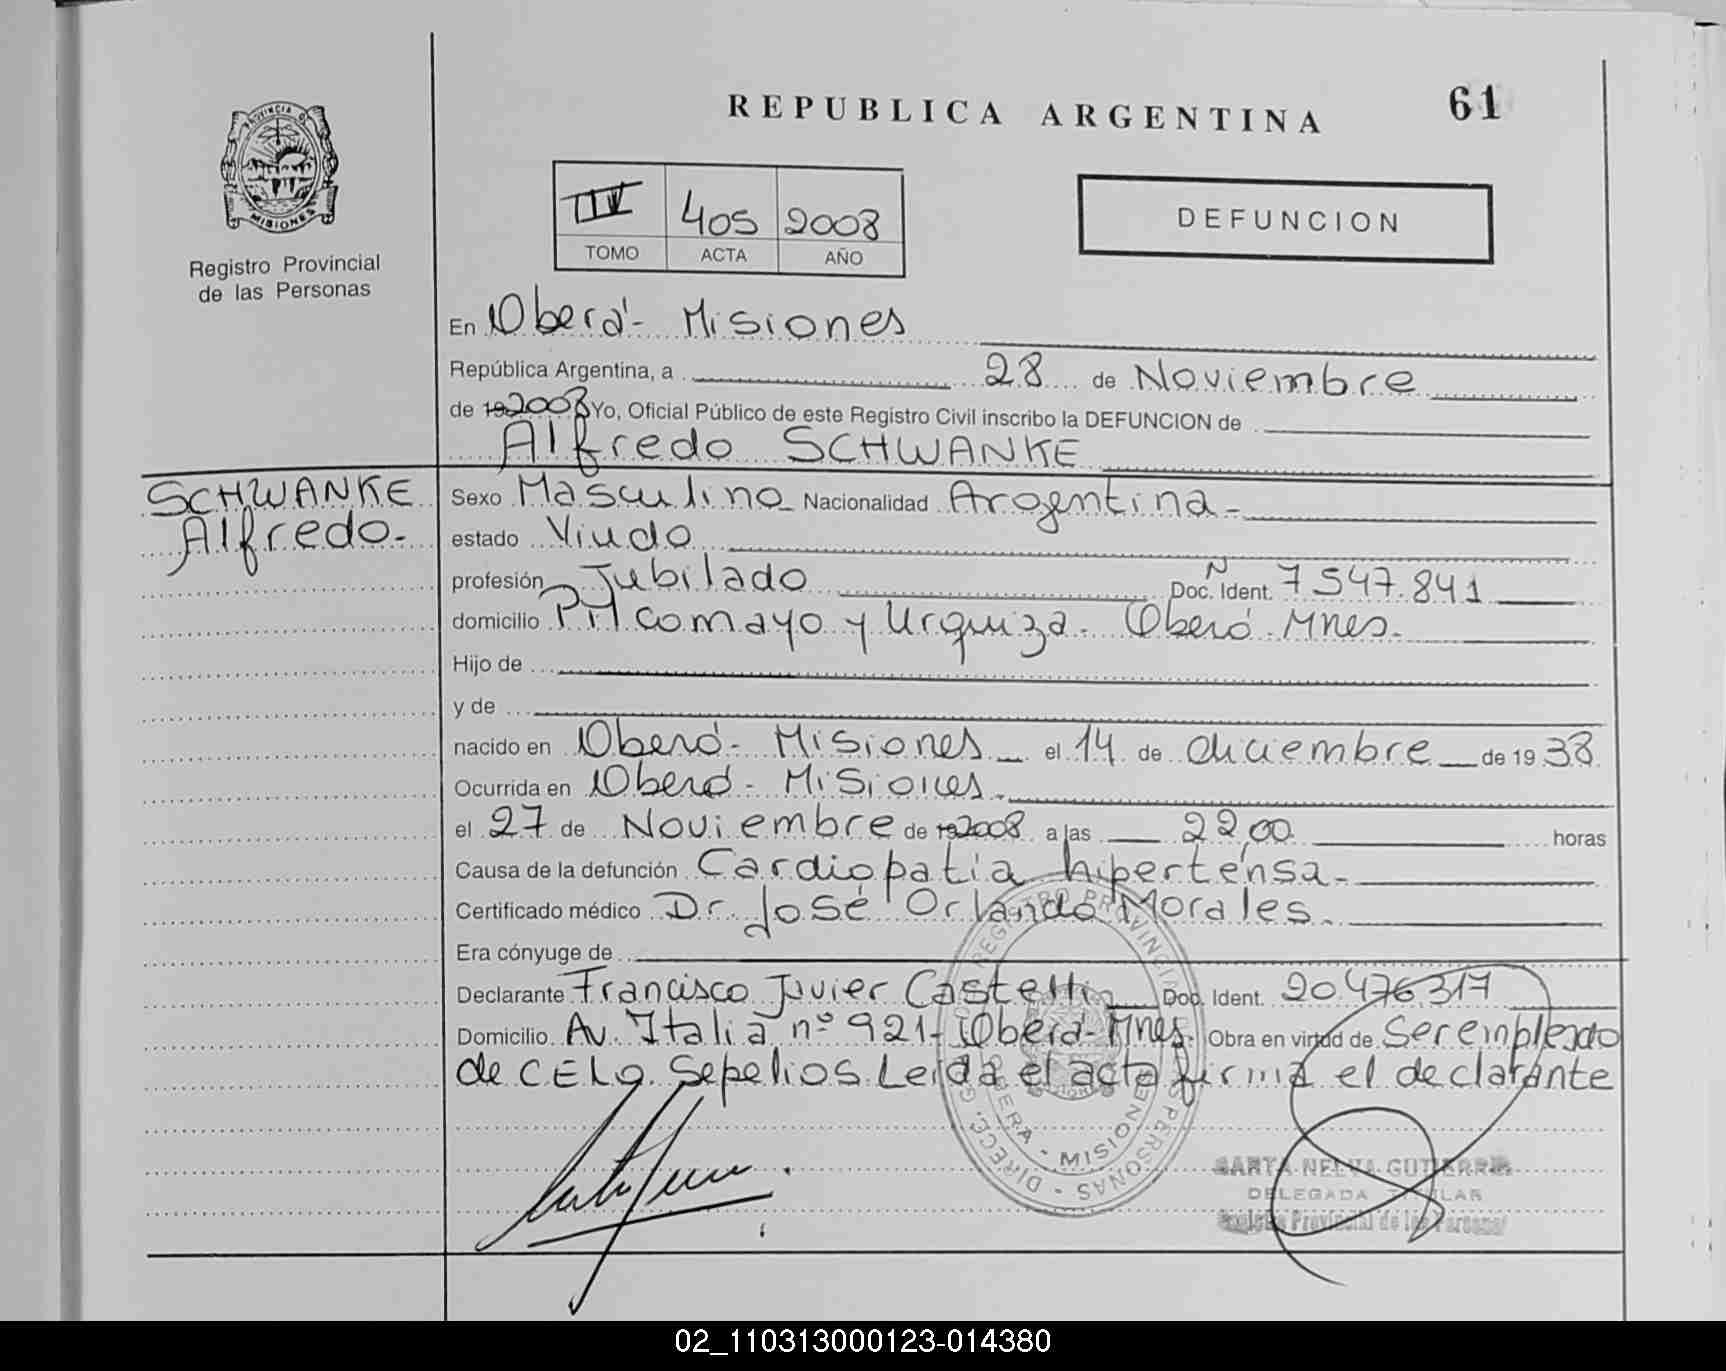 REPUBLICA ARGENTINA
61
PROVINCIA DE
MISIONES
Registro Provincial
de las Personas
III 405 2008
TOMO ACTA AÑO
DEFUNCION
En Oberá - Misiones
República Argentina, a 28 de Noviembre
de 19 2008 Yo, Oficial Público de este Registro Civil inscribo la DEFUNCION de
Alfredo SCHWANKE
SCHWANKE
Alfredo.-
Sexo Masculino Nacionalidad Argentina-
estado Viudo
profesión Jubilado Doc. Ident. N 7547.841
domicilio Pilcomayo y Urquiza. Oberá. Mnes.
Hijo de
y de
nacido en Oberá- Misiones el 14 de diciembre de 1938
Ocurrida en Oberá - Misiones.
el 27 de Noviembre de 19 2008 a las 22,00 horas
Causa de la defunción Cardiopatía hipertensa.-
Certificado médico Dr. José Orlando Morales.
Era cónyuge de
Declarante Francisco Javier Castelli Doc. Ident. 20.476.317
Domicilio Av. Italia nº 921- Oberá- Mnes. Obra en virtud de Ser empleado
de CELO. Sepelios. Leída el acta firma el declarante
NELVA GUTIERREZ
DELEGADA TITULAR
Registro Provincial de las Personas
02_110313000123-014380